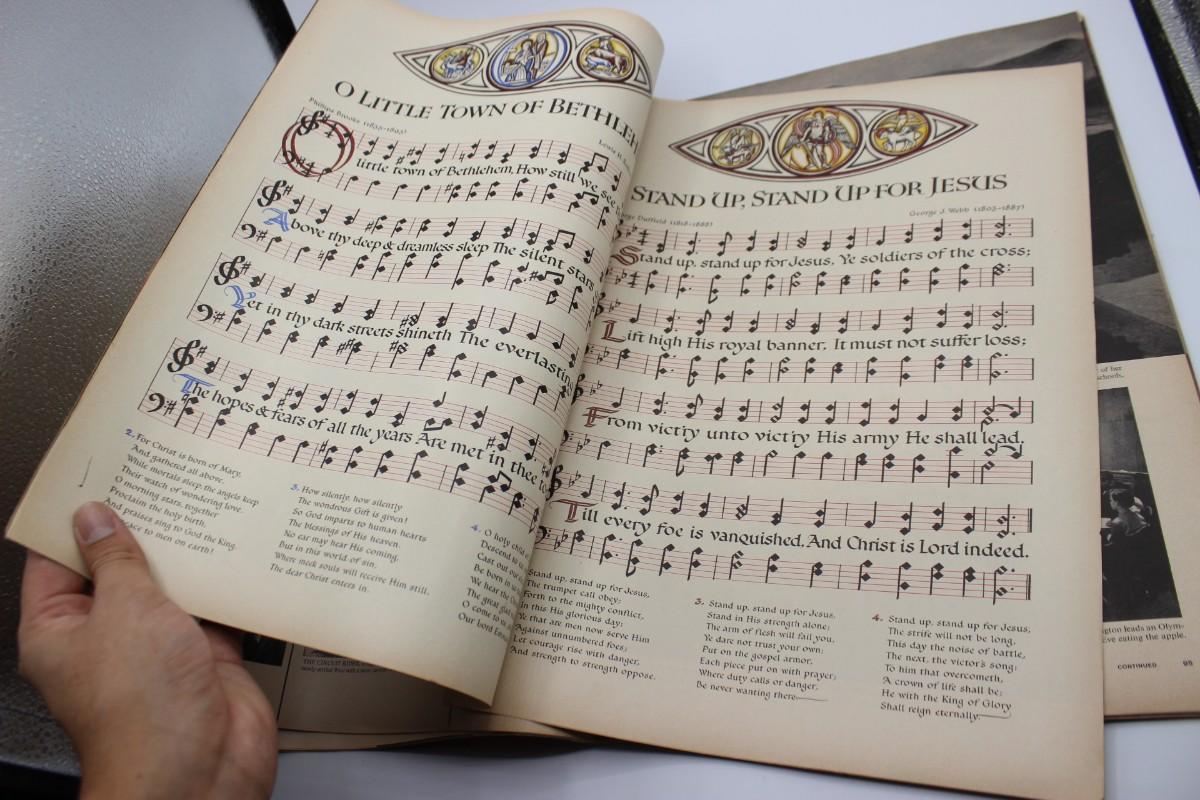 O LITTLE TOWN OF BETHLEH
Phillips Brooks (1835-1893)
Lewis H.
O little town of Bethlehem, How still we see
Above thy deep & dreamless sleep The silent stars
Yet in thy dark streets shineth The everlasting
The hopes & fears of all the years Are met in the
2. For Christ is born of Mary,
And gathered all above,
While mortals sleep, the angels keep
Their watch of wondering love.
O morning stars, together
Proclaim the holy birth,
And praises sing to God the King,
to men on earth!
3. How silently, how silently
The wondrous Gift is given!
So God imparts to human hearts
The blessings of His heaven.
No ear may hear His coming,
But in this world of sin,
Where meek souls will receive Him still,
The dear Christ enters in.
4. O holy child
Descend to
Cast out our
Be born in
We hear the
The great glad
O come to us
Our Lord
STAND UP, STAND UP FOR JESUS
Duffield (1818-1888)
George J. Webb (1803-1887)
Stand up, stand up for Jesus, Ye soldiers of the cross;
Lift high His royal banner, It must not suffer loss;
From vict'ry unto vict'ry His army He shall lead,
Till every foe is vanquished, And Christ is Lord indeed.
Stand up, stand up for Jesus,
The trumpet call obey;
Forth to the mighty conflict,
In this His glorious day;
Ye that are men now serve Him
Against unnumbered foes;
Let courage rise with danger,
And strength to strength oppose.
3. Stand up, stand up for Jesus,
Stand in His strength alone;
The arm of flesh will fail you,
Ye dare not trust your own;
Put on the gospel armor,
Each piece put on with prayer;
Where duty calls or danger,
Be never wanting there
4. Stand up, stand up for Jesus,
The strife will not be long,
This day the noise of battle,
The next, the victor's song;
To him that overcometh,
A crown of life shall be;
He with the King of Glory
Shall reign eternally.
of her
schools.
ngton leads an Olym-
Eve eating the apple.
CONTINUED 95
THE CIRCUIT RIDER